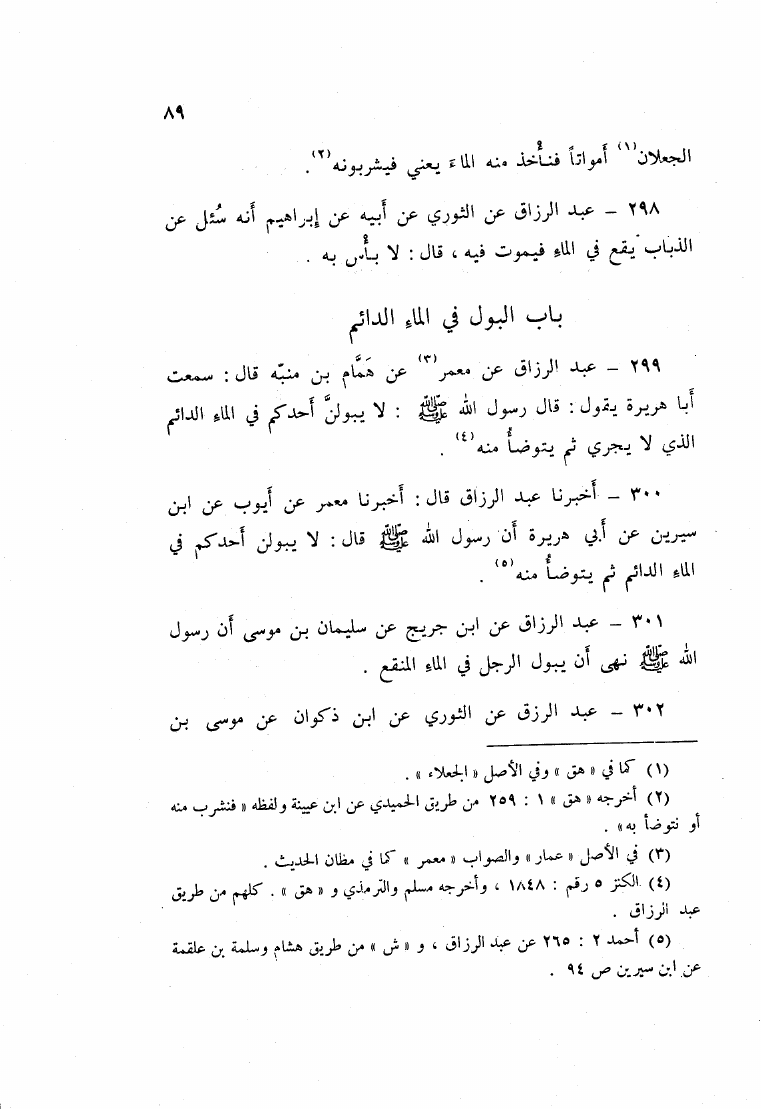 ٨٩
الجعلان(١) أمواتاً فنأْخذ منه الماءَ يعني فيشربونه(٢) .
٢٩٨ – عبد الرزاق عن الثوري عن أبيه عن إبراهيم أنه سُئل عن
الذباب يقع في الماءِ فيموت فيه ، قال : لا بأْس به .
باب البول في الماءِ الدائم
٢٩٩ – عبد الرزاق عن معمر(٣) عن هَمَّام بن منبّه قال : سمعت
أبا هريرة يقول : قال رسول الله ﷺ : لا يبولنَّ أحدكم في الماءِ الدائم
الذي لا يجري ثم يتوضأُ منه(٤) .
٣٠٠ – أخبرنا عبد الرزاق قال : أخبرنا معمر عن أيوب عن ابن
سيرين عن أبي هريرة أن رسول الله ﷺ قال : لا يبولن أحدكم في
الماءِ الدائم ثم يتوضأُ منه(٥) .
٣٠١ – عبد الرزاق عن ابن جريج عن سليمان بن موسى أن رسول
الله ﷺ نهى أن يبول الرجل في الماءِ المنقع .
٣٠٢ – عبد الرزق عن الثوري عن ابن ذكوان عن موسى بن
(١) كما في « هق » وفي الأصل « الجعلاء » .
(٢) أخرجه « هق » ١ : ٢٥٩ من طريق الحميدي عن ابن عيينة ولفظه « فنشرب منه
أو نتوضأ به » .
(٣) في الأصل « عمار » والصواب « معمر » كما في مظان الحديث .
(٤) الكنز ٥ رقم : ١٨٤٨ ، وأخرجه مسلم والترمذي و « هق » . كلهم من طريق
عبد الرزاق .
(٥) أحمد ٢ : ٢٦٥ عن عبد الرزاق ، و « ش » من طريق هشام وسلمة بن علقمة
عن ابن سيرين ص ٩٤ .